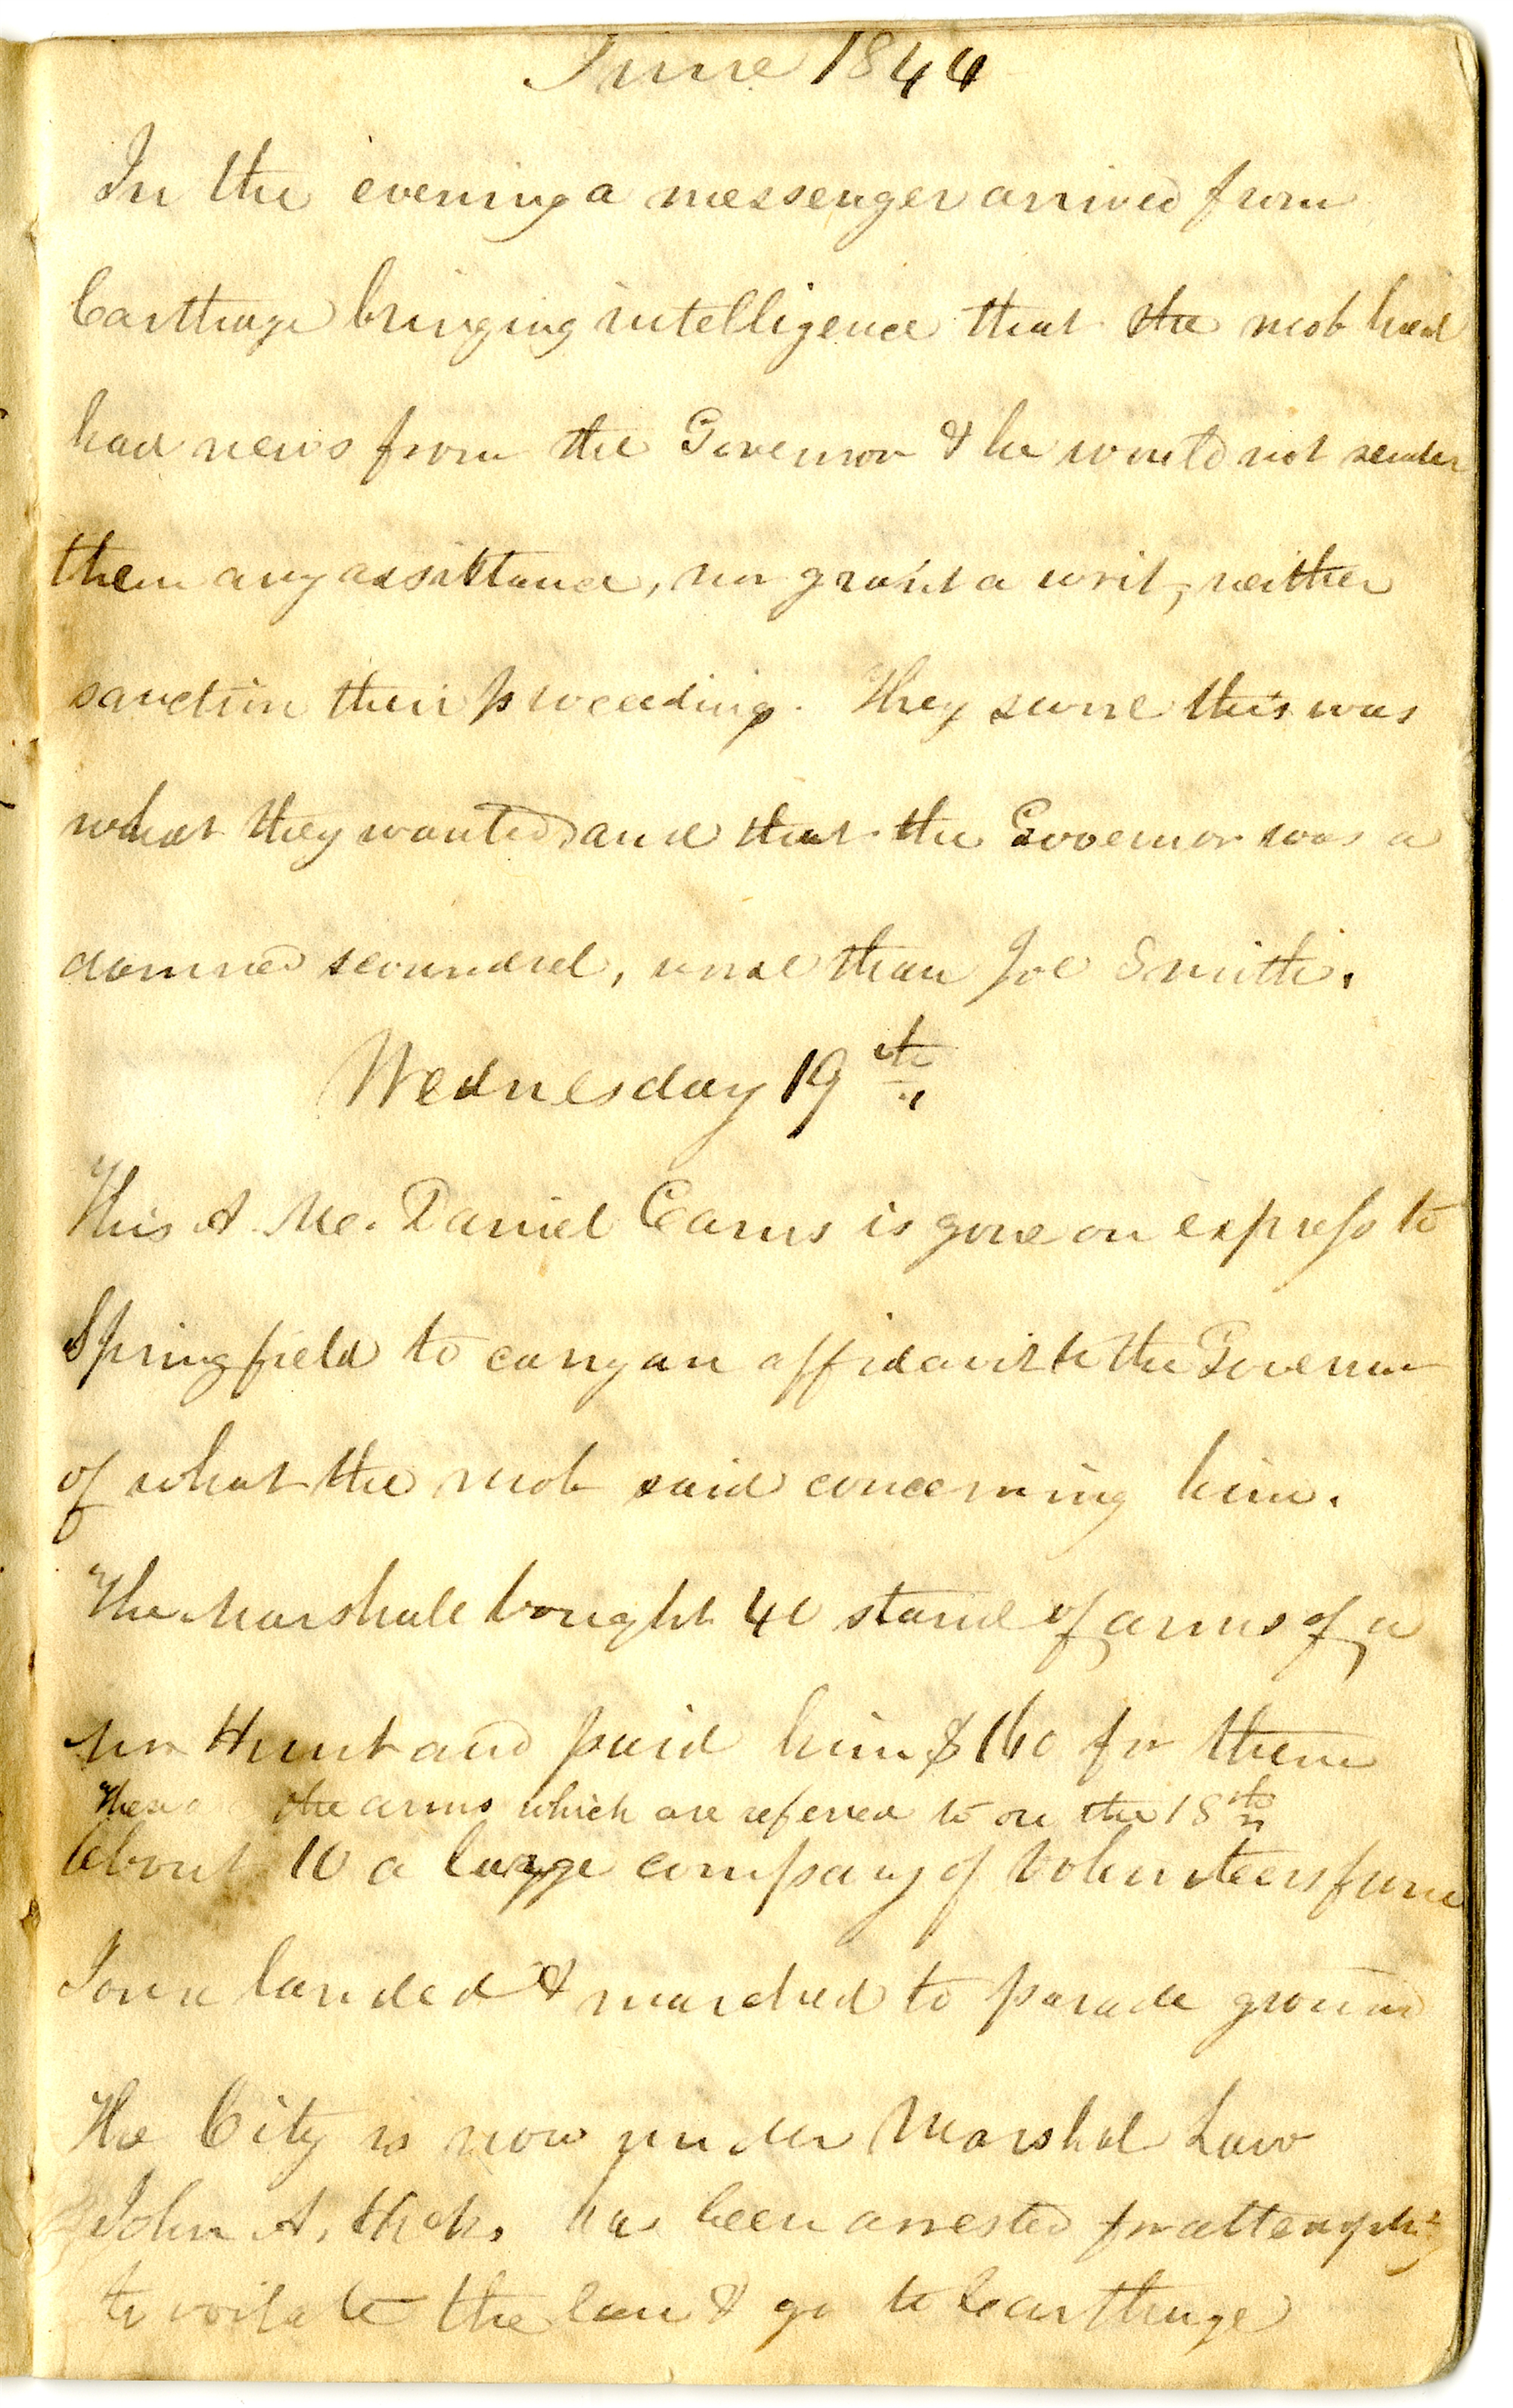 June 1844
In the evening a messenger arrived from
Carthage bringing intelligence that the mob had
had news from the Governor & he would not render
them any assistance, nor grant a writ, neither
sanction their proceeding. They swore this was
what they wanted and that the Governor was a
damned scoundrel, worse than Joe Smith.
Wednesday 19th
This A. M. Daniel Cairns is gone on express to
Springfield to carry an affidavit to the Governor
of what the mob said concerning him.
The Marshall bought 40 stand of arms of a
Mr Hunt and paid him $160 for them
These are the arms which are referred to on the 18th
About 10 a large company of Volunteers from
Iowa landed & marched to parade ground
The City is now under Marshal Law
John A. Hicks has been arrested for attempting
to voilate the law & go to Carthage